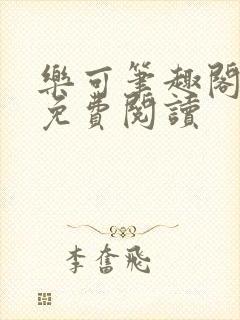 樂可筆趣閣
免費閱讀
李奮飛